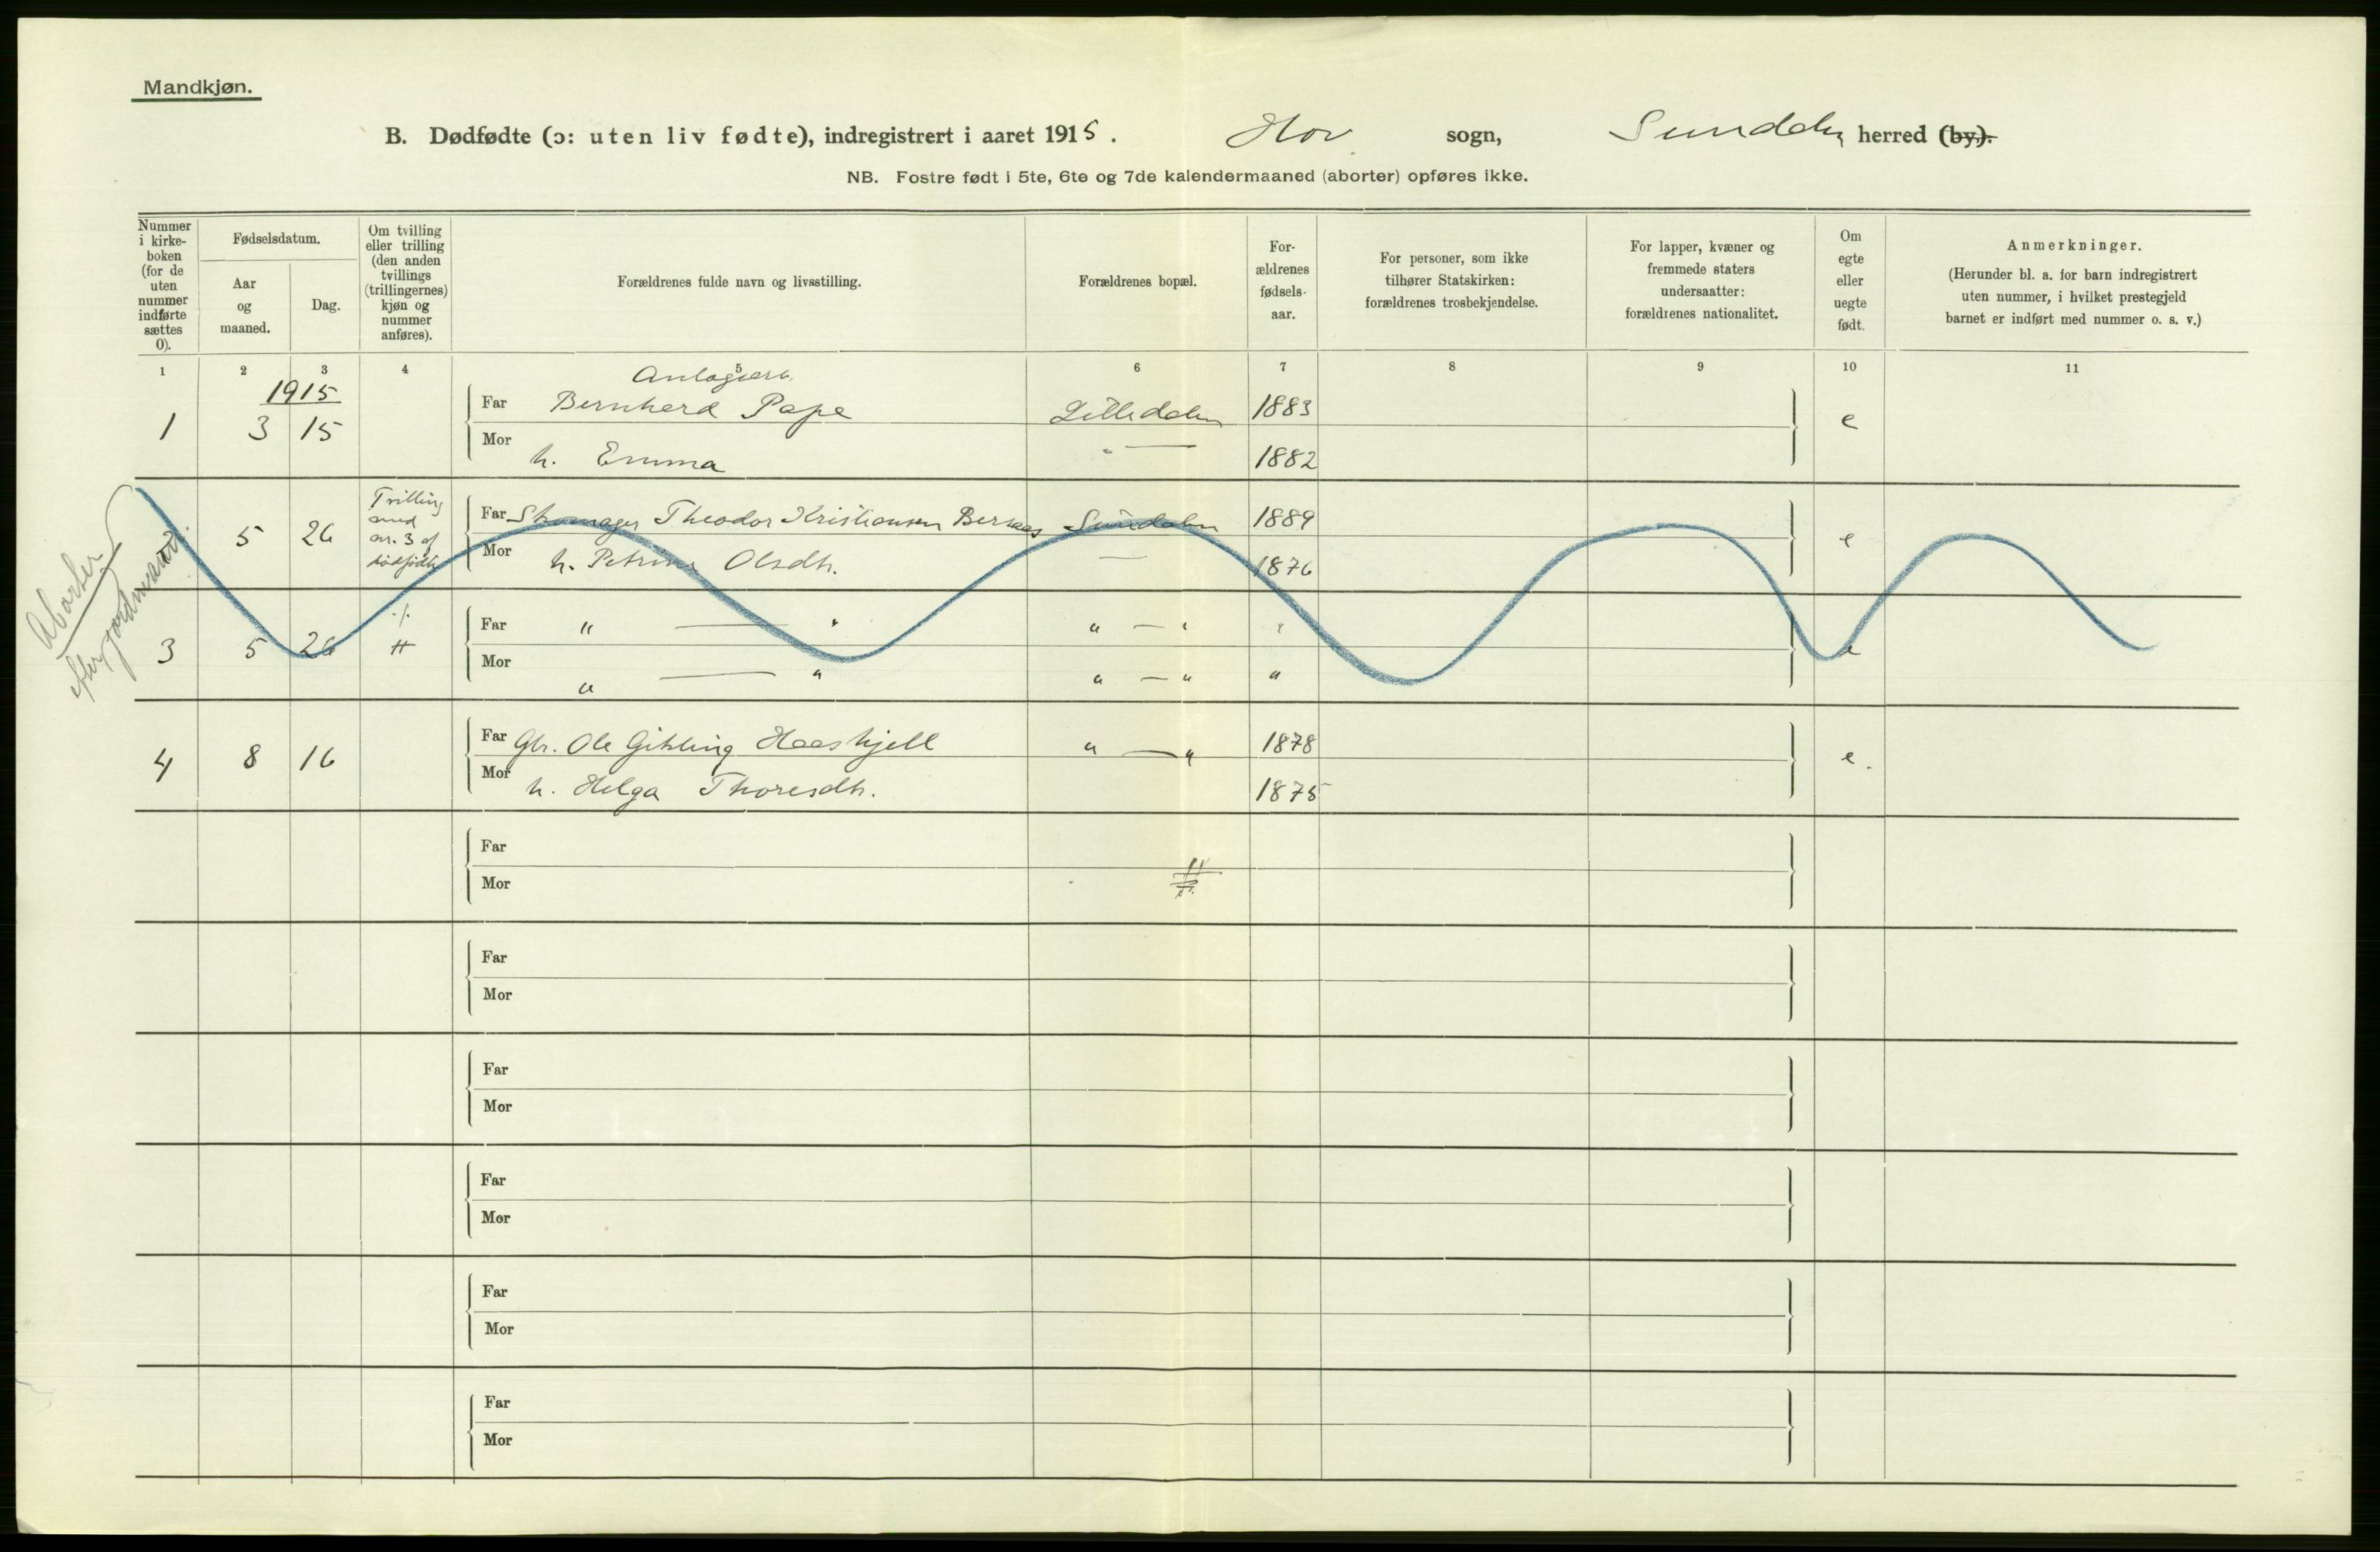 Mandkjøn.
B. Dødfødte (ɔ: uten liv fødte), indregistrert i aaret 1915. Hov sogn, Sunddal herred (by).
NB. Fostre født i 5te, 6te og 7de kalendermaaned (aborter) opføres ikke.
Nummer i kirke-boken (for de uten nummer indførte sættes 0).
Fødselsdatum.
Aar og maaned.
Dag.
Om tvilling eller trilling (den anden tvillings (trillingernes) kjøn og nummer anføres).
Forældrenes fulde navn og livsstilling.
Forældrenes bopæl.
For-ældrenes fødsels-aar.
For personer, som ikke tilhører Statskirken: forældrenes trosbekjendelse.
For lapper, kvæner og fremmede staters undersaatter: forældrenes nationalitet.
Om egte eller uegte født.
Anmerkninger.
(Herunder bl. a. for barn indregistrert uten nummer, i hvilket prestegjeld barnet er indført med nummer o. s. v.)
1 2 3 4 5 6 7 8 9 10 11
1915
Anlagsarb.
1 3 15 Far Bernhard Pape Lilledalen 1883 e
Mor h. Emma " — 1882
Aborter
efter jordmoren
5 26 Trilling med nr. 3 af dødfødte Far Skomager Theodor Kristiansen Sundalen 1889 e
Mor h. Petrine Olsdtr. — 1876
3 5 26 Far " — " " — " " e
Mor " — " " — " "
4 8 16 Far Gbr. Ole Gikling Haaskjell " — " 1878 e.
Mor h. Helga Thoresdtr. 1875
Far
Mor
Far
Mor
Far
Mor
Far
Mor
Far
Mor
Far
Mor